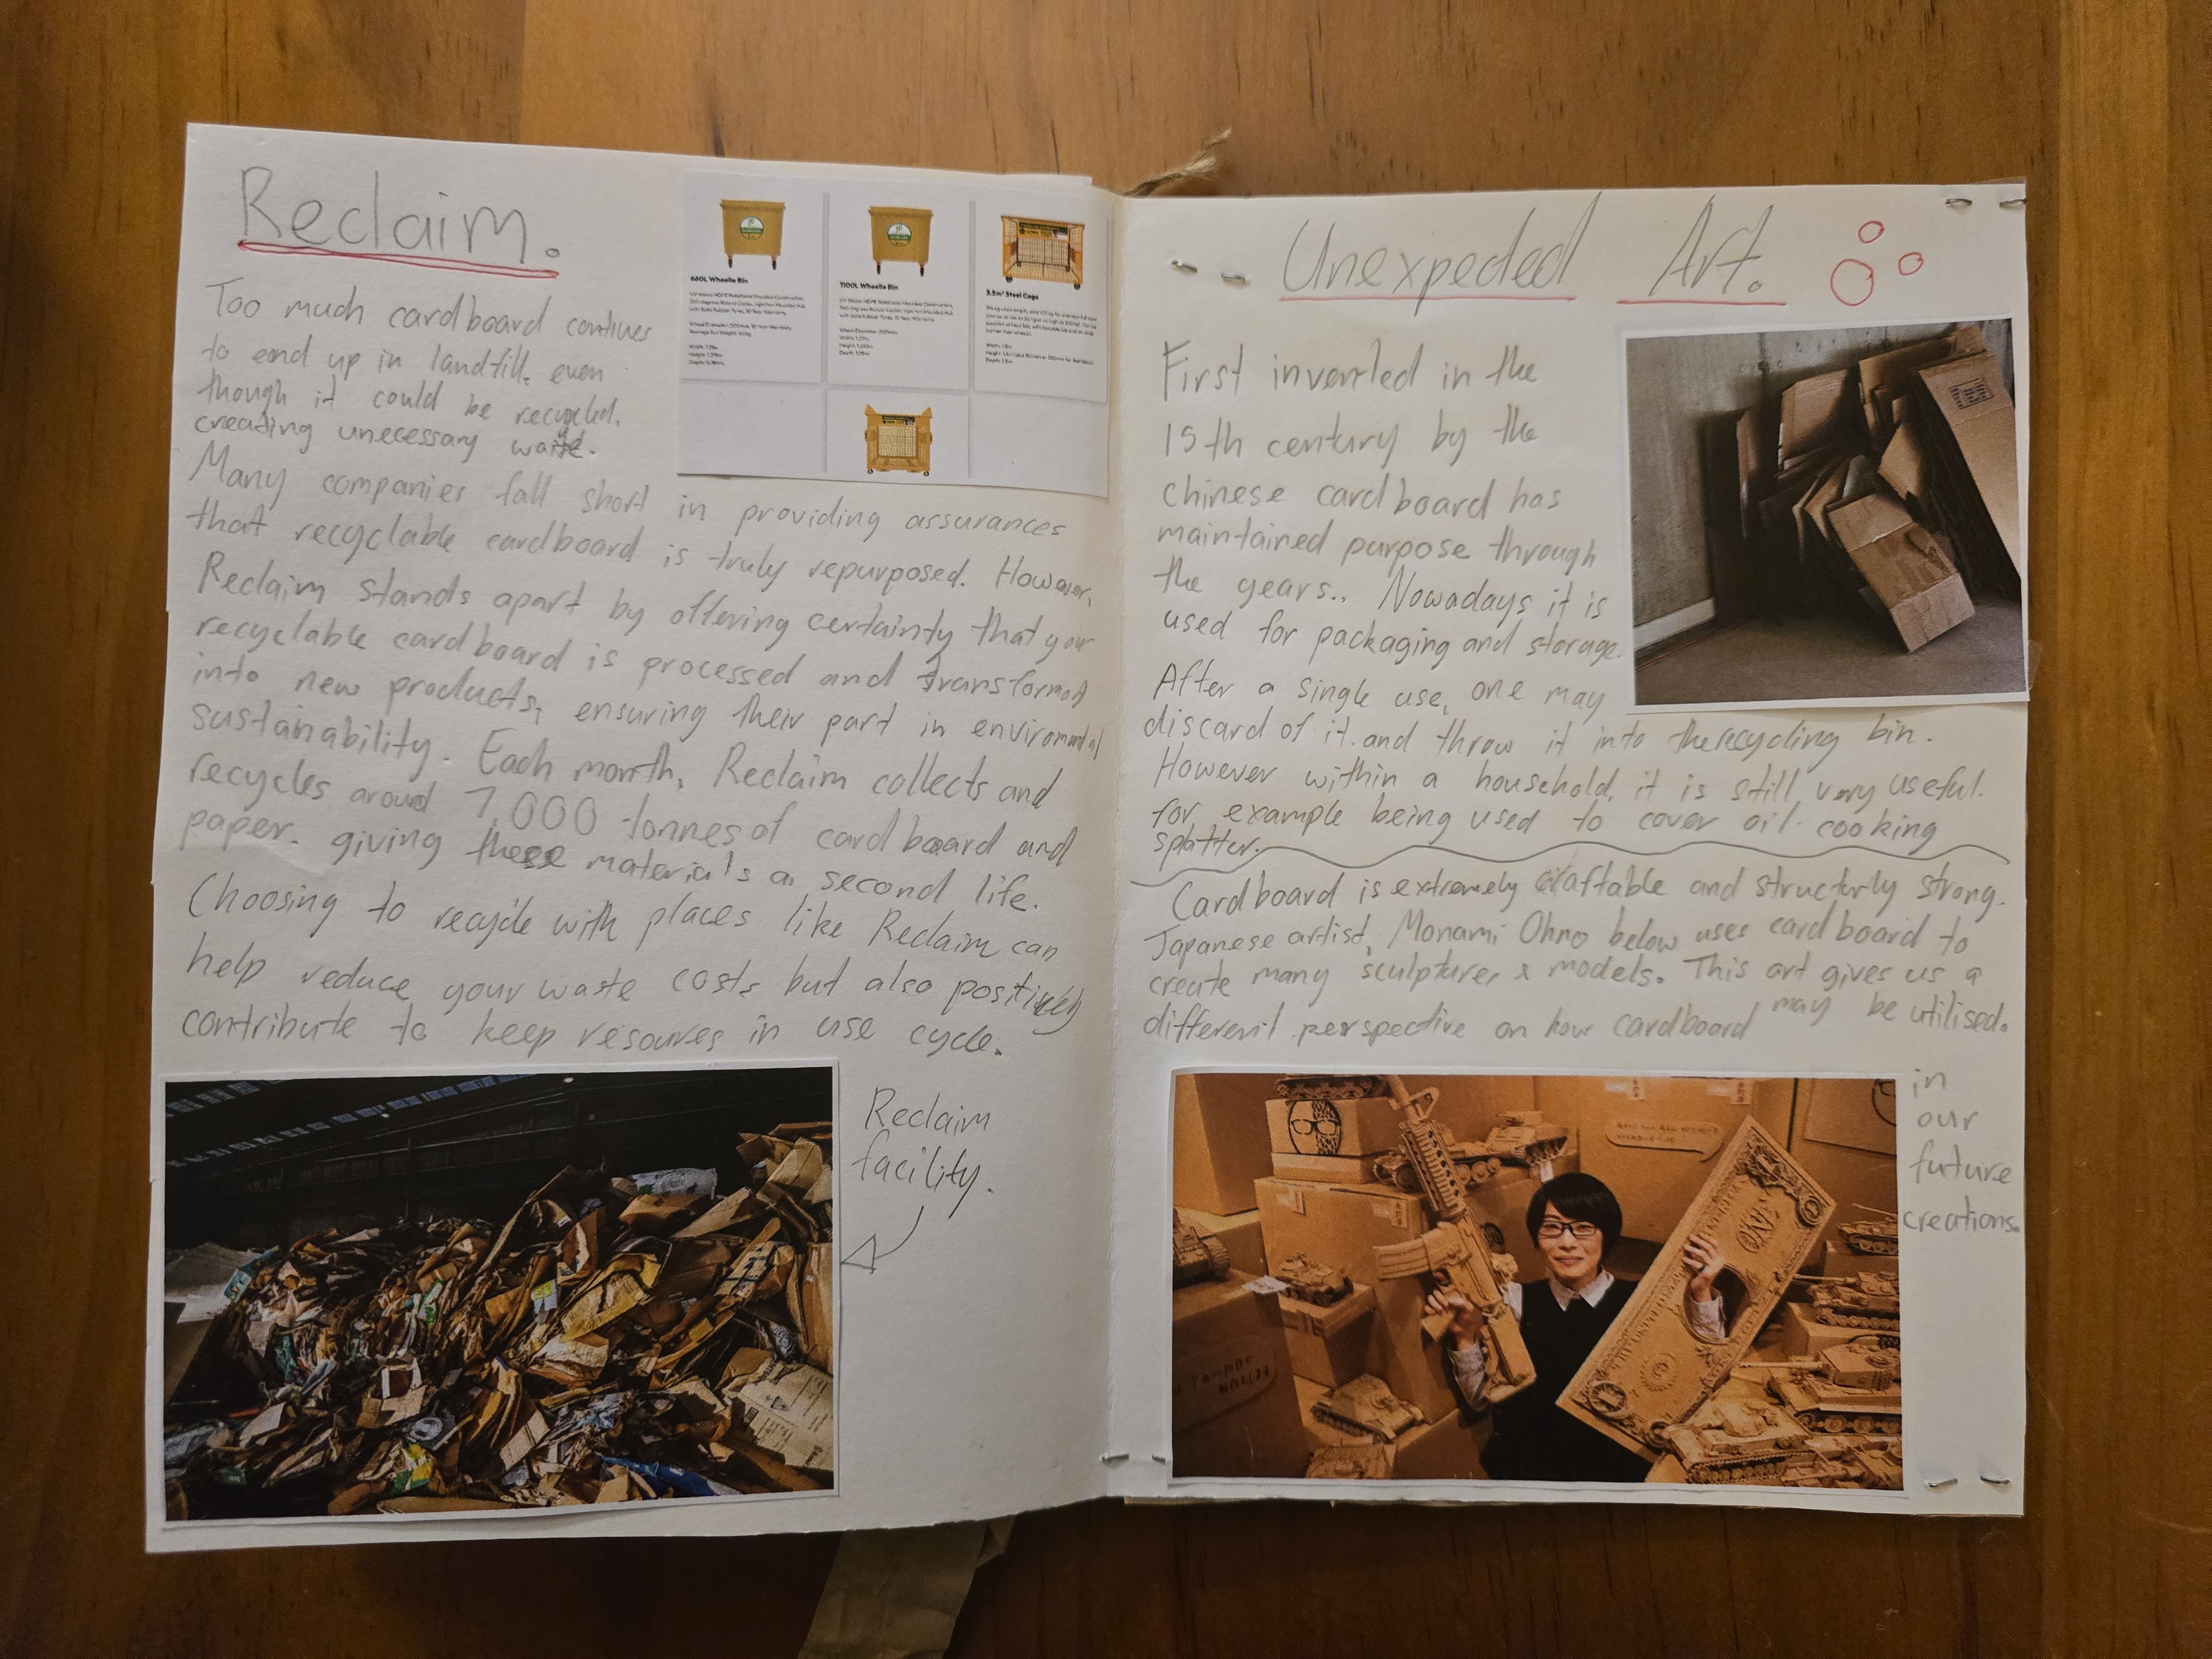 Reclaim.
Too much cardboard contines
to end up in landfill. even
though it could be recycled.
creating unecessary waste.
Many companies fall short in providing assurances
that recyclable cardboard is truly repurposed. However,
Reclaim stands apart by offering certainty that your
recyclable cardboard is processed and transformed
into new products, ensuring their part in enviromental
sustainability. Each month, Reclaim collects and
recycles around 7,000 tonnes of cardboard and
paper. giving these materials a second life.
Choosing to recycle with places like Reclaim can
help reduce your waste costs but also positively
contribute to keep resources in use cycle.
Reclaim
facility.
660L Wheelie Bin
1100L Wheelie Bin
3.5m³ Steel Cage
Unexpected Art.
First invented in the
15th century by the
chinese cardboard has
maintained purpose through
the years.. Nowadays it is
used for packaging and storage.
After a single use, one may
discard of it. and throw it into the recycling bin.
However within a household, it is still very useful.
for example being used to cover oil cooking
splatter.
Cardboard is extremely craftable and structurly strong.
Japanese artist, Monami Ohno below uses cardboard to
create many sculptures & models. This art gives us a
different perspective on how cardboard may be utilised.
in
our
future
creations.